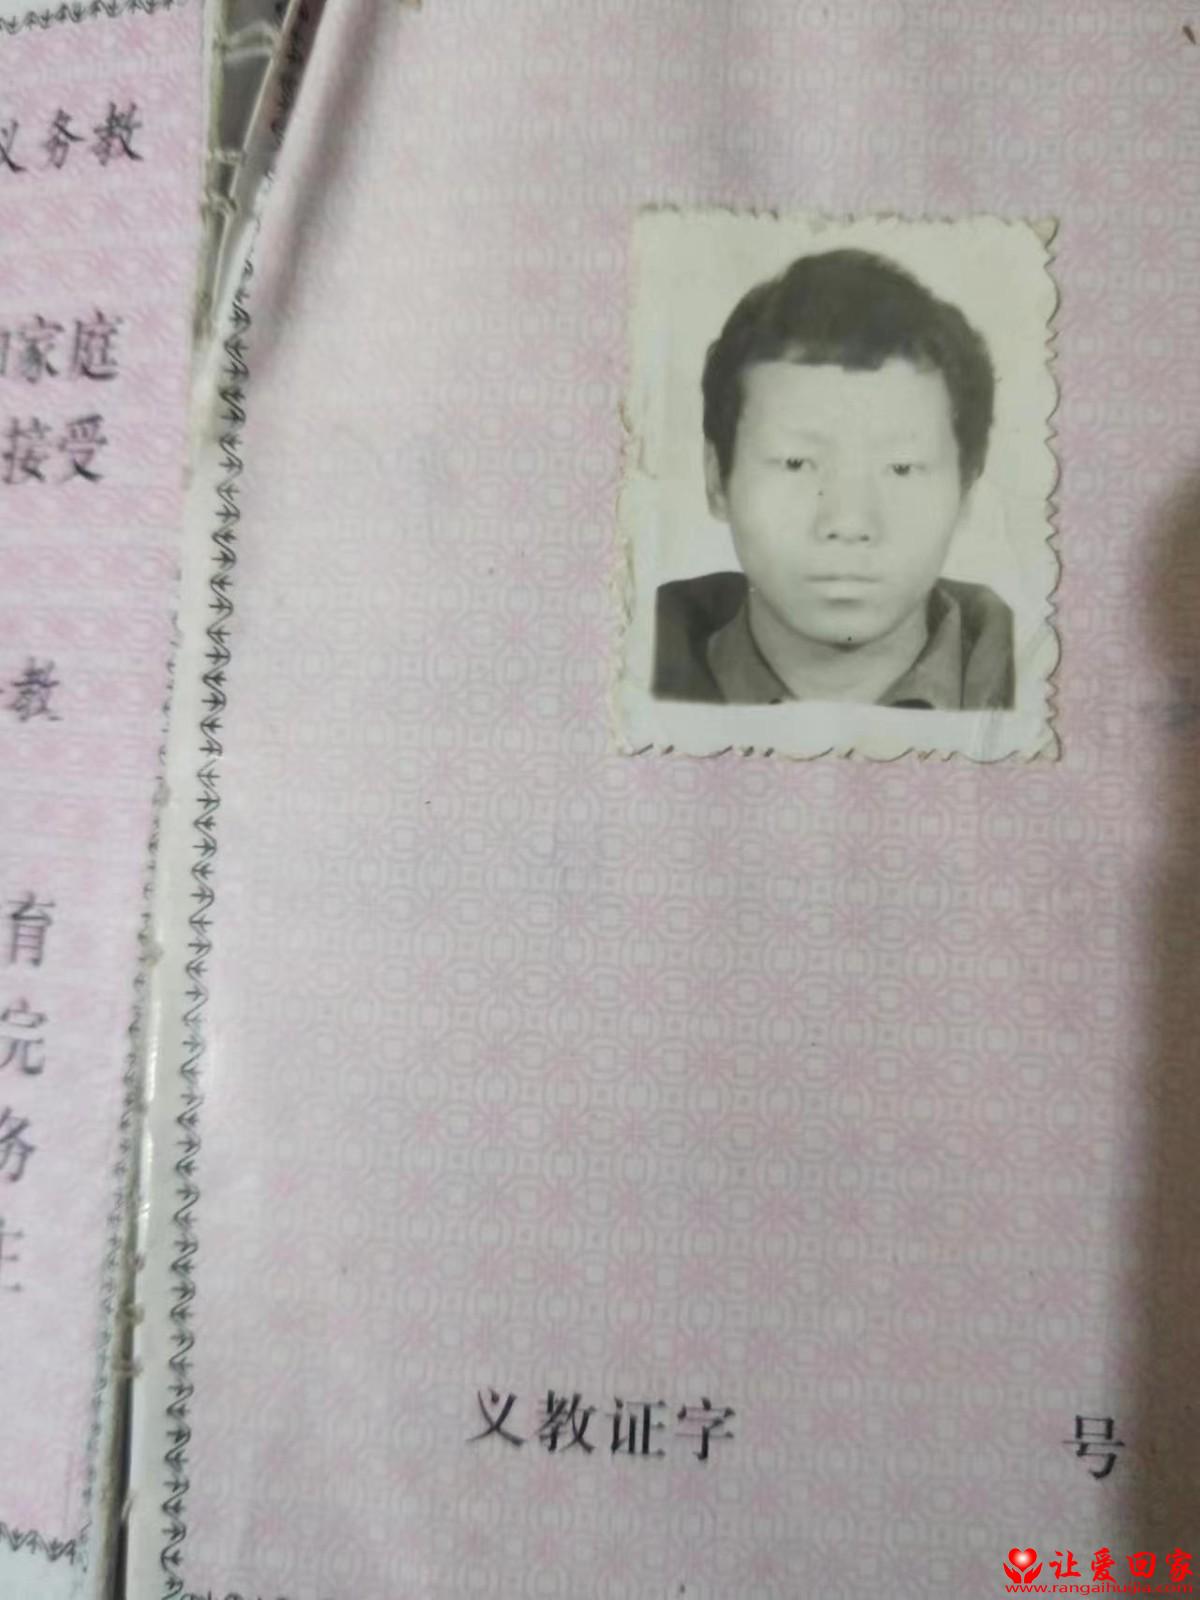 义务教
家庭
接受
教
育
完
务
义教证字 号
让爱回家
www.rangaihuijia.com